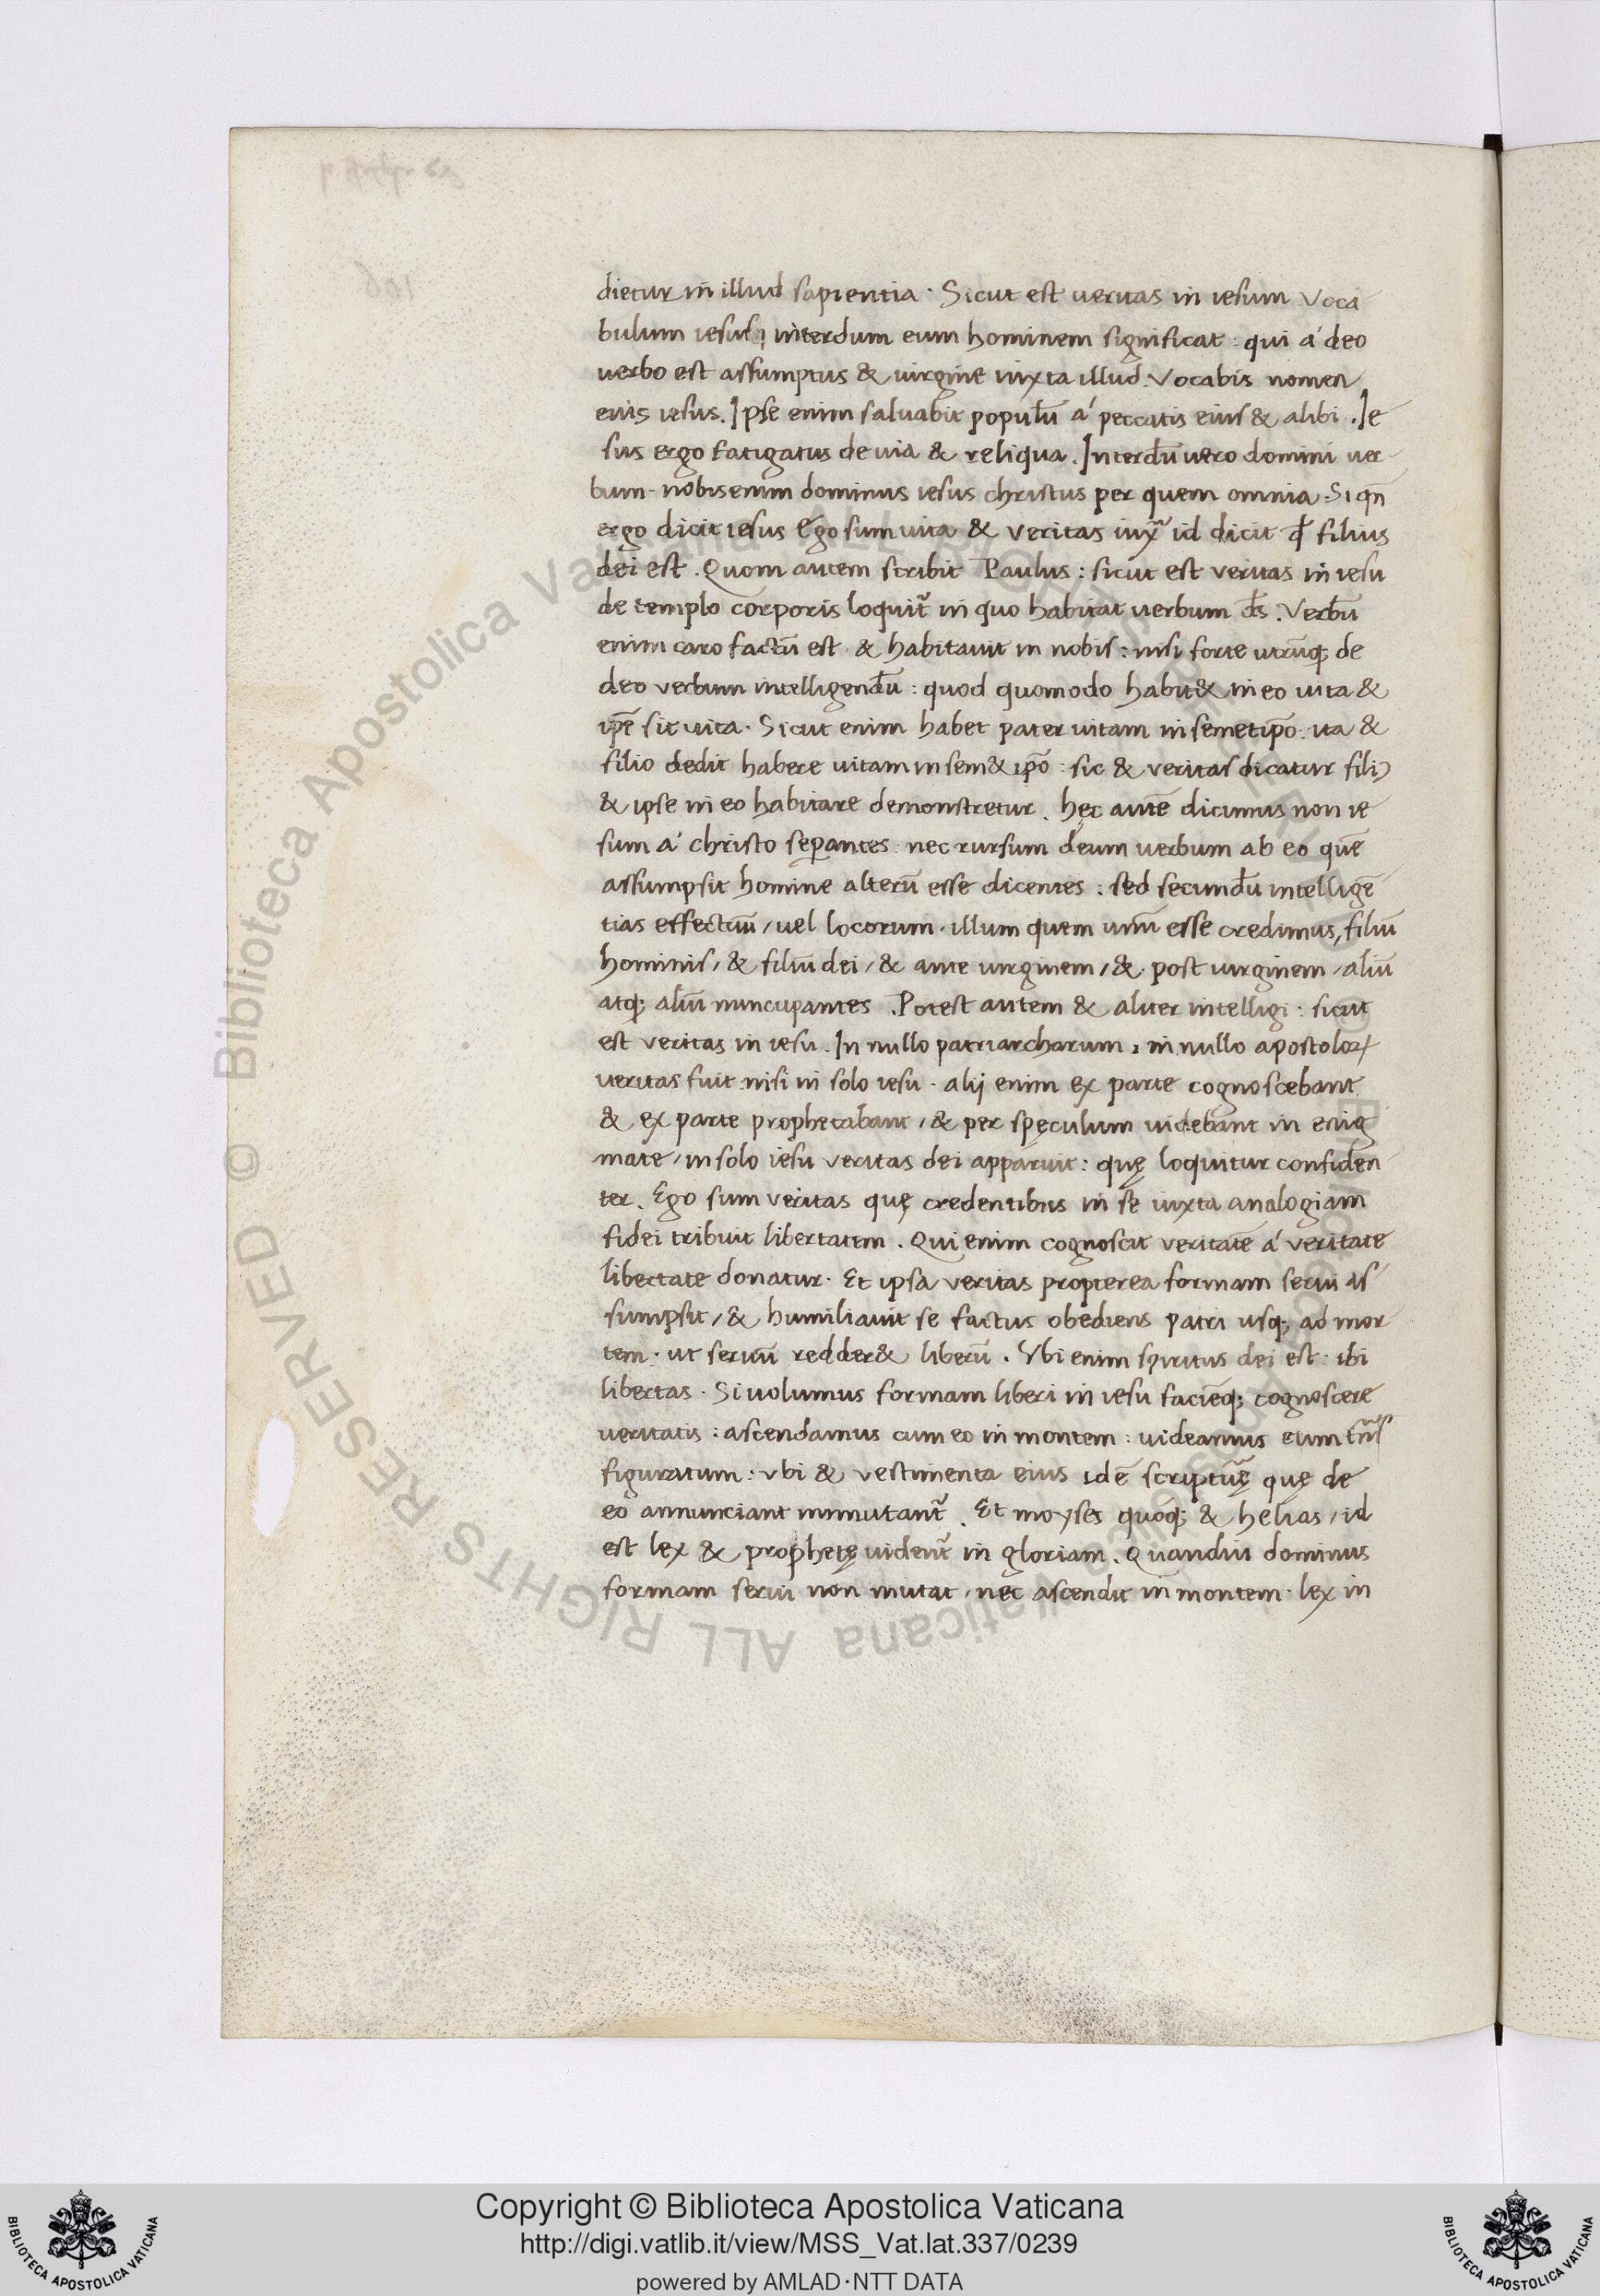 dietur in illud sapientia · Sicut est ueritas in iesum Voca
bulum iesus, interdum eum hominem significat : qui á deo
uerbo est assumptus & uirgine iuxta illud. Vocabis nomen
eius iesus. Ipse enim saluabit populū á peccatis eius & alibi . Ie
sus ergo fatigatus de uia & reliqua . Interdū uero domini uer
bum · nobis enim dominus iesus christus per quem omnia . Si qn̄
ergo dicit iesus Ego sum uita & veritas iux̄ id dicit qđ filius
dei est . Quom autem scribit Paulus : sicut est veritas in iesu
de templo corporis loquit᷑ in quo habitat uerbum d̄s . Verbū
enim caro factū est · & habitauit in nobis : nisi forte utrūq; de
deo verbum intelligendū : quod quomodo habit& in eo uita &
ip̄e sit uita · Sicut enim habet pater uitam in semetip̄o : ita &
filio dedit habere uitam in sem&ip̄o : sic & veritas dicatur fili9
& ipse in eo habitare demonstretur . hęc autē dicimus non ie
sum á christo sep̄antes : nec rursum deum uerbum ab eo quē
assumpsit homine alterū esse dicentes : sed secundū intelligē
tias effectuū / uel locorum · illum quem unū esse credimus, filiū
hominis / & filiū dei / & ante uirginem / & post uirginem / aliū
atq; aliū nuncupantes . Potest autem & aliter intelligi : sicut
est veritas in iesu . In nullo patriarcharum , in nullo apostoloꝝ
ueritas fuit nisi in solo iesu · alij enim ex parte cognoscebant
& ex parte prophetabant / & per spęculum uidebant in enig
mate / in solo iesu veritas dei apparuit : quę loquitur confiden
ter . Ego sum veritas quę credentibus in se iuxta analogiam
fidei tribuit libertatem . Qui enim cognoscit veritatē á veritate
libertate donatur · Et ipsa veritas propterea formam serui as
sumpsit / & humiliauit se factus obediens patri usq; ad mor
tem · ut seruū redder& liberū . Vbi enim spiritus dei est : ibi
libertas · Si uolumus formam liberi in iesu faciēq; cognoscere
ueritatis : ascendamus cum eo in montem : uideamus eum trāſ
figuratum : vbi & vestimenta eius idē scriptuͣę quę de
eo annunciant inmutant᷑ . Et moyses quoq; & helias / id
est lex & prophetę uident᷑ in gloriam . Quandiu dominus
formam serui non mutat / nec ascendit in montem · lex in
Copyright © Biblioteca Apostolica Vaticana
http://digi.vatlib.it/view/MSS_Vat.lat.337/0239
powered by AMLAD·NTT DATA
BIBLIOTECA APOSTOLICA VATICANA
BIBLIOTECA APOSTOLICA VATICANA